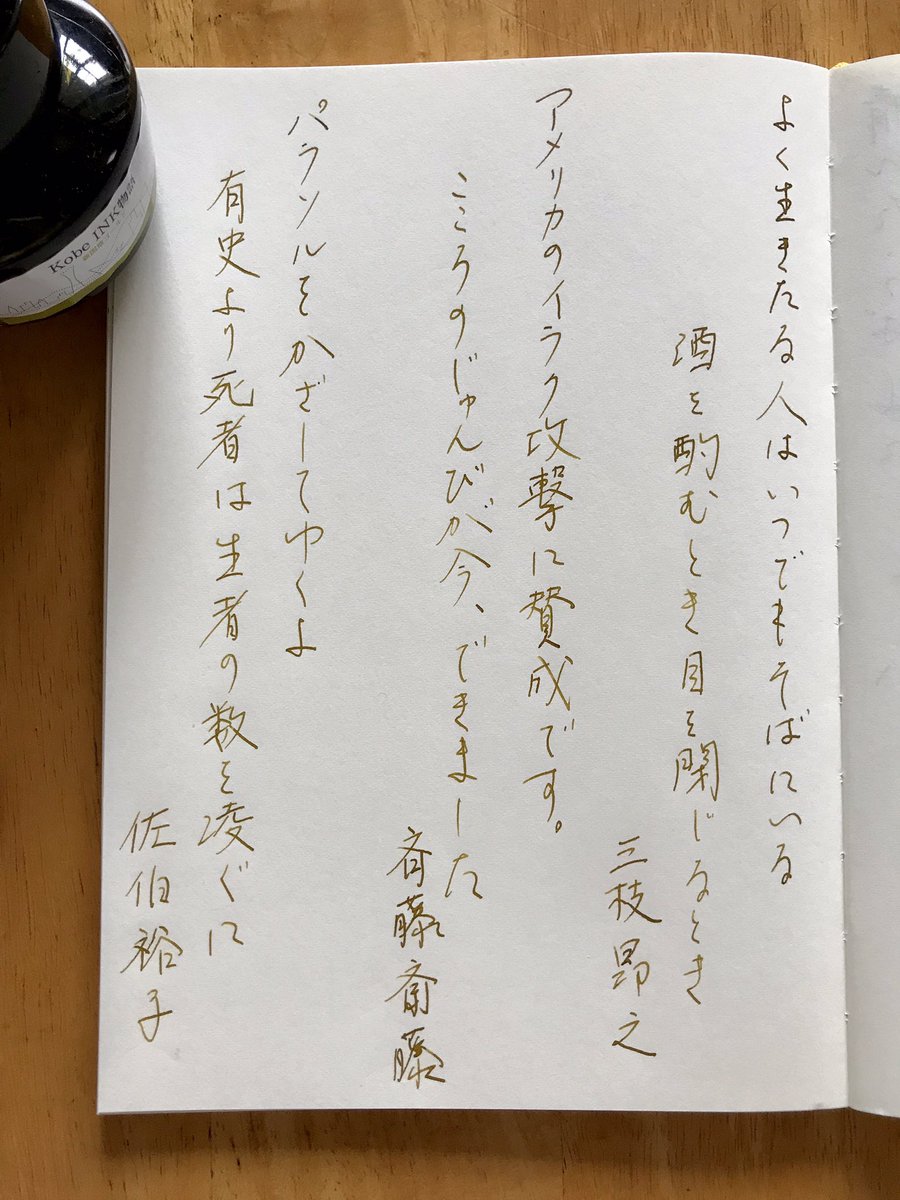 よく生きたる人はいつでもそばにいる
酒を酌むとき目を閉じるとき
三枝昂之
アメリカのイラク攻撃に賛成です。
こころのじゅんびが今、できました
斉藤斎藤
パラソルをかざしてゆくよ
有史より死者は生者の数を凌ぐに
佐伯裕子
Kobe INK物語